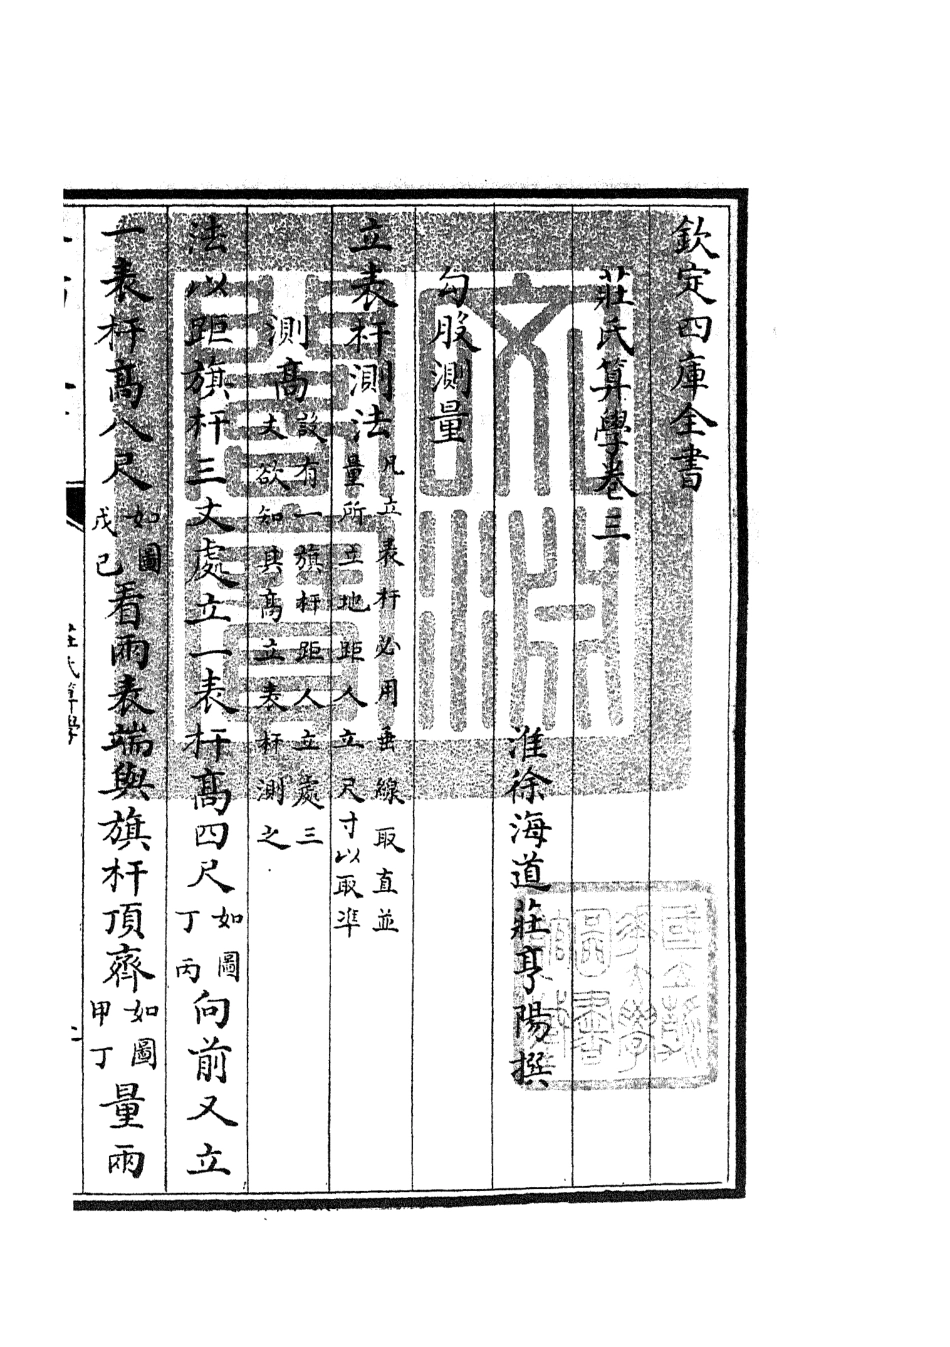 欽定四庫全書
莊氏算學卷三
淮徐海道莊亨陽撰
勾股測量
立表杆測法凡立表杆必用垂線取直並
量所立地距人立尺寸以取準
測髙設有一旗杆距人立處三
丈欲知其髙立表杆測之
法以距旗杆三丈處立一表杆髙四尺如圖
丁丙向前又立
一表杆髙八尺如圖
戊己看兩表端與旗杆頂齊如圖
甲丁量兩
莊氏算學